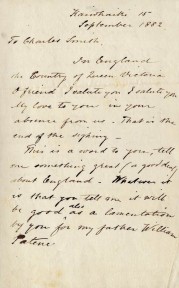 Kawhaiki 15
September 1882
To Charles Smith.
For England
the Country of Queen Victoria
O friend I salute you I salute you
My love to you in your
absence from us. That is the
end of the sighing.
This is a word to you, tell
me something great (a good deal)
about England. Whatever it
is that you tell me it will
be good also as a lamentation
by you for my father William
Patene.